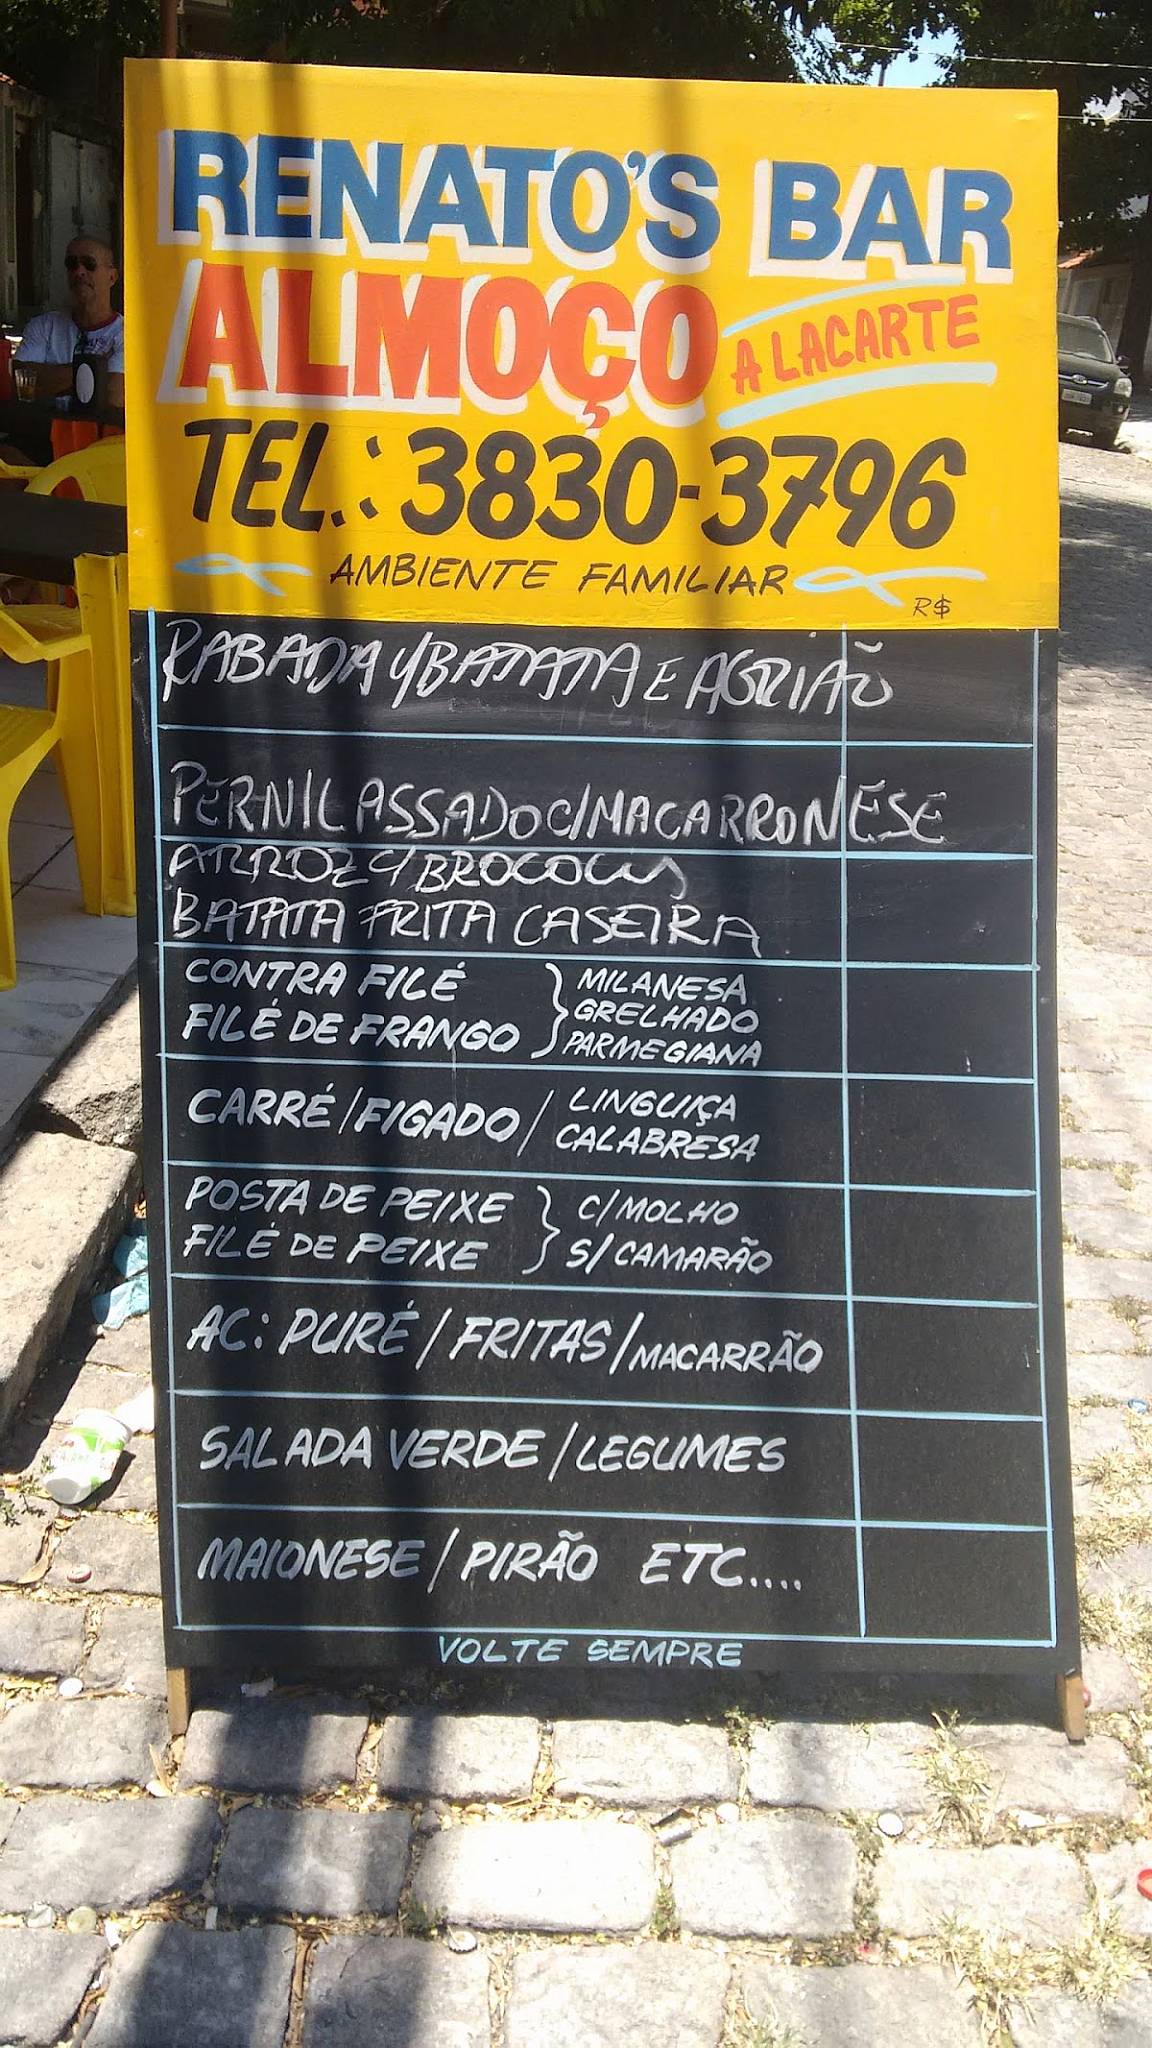 RENATO'S BAR
ALMOÇO A LACARTE
TEL.: 3830-3796
AMBIENTE FAMILIAR
R$
RABADA C/BATATA E AGRIÃO
PERNIL ASSADO C/MACARRONESE
ARROZ C/BROCOCLIS
BATATA FRITA CASEIRA
CONTRA FILÉ
FILÉ DE FRANGO
MILANESA
GRELHADO
PARMEGIANA
CARRÉ/FIGADO/
LINGUIÇA
CALABRESA
POSTA DE PEIXE
FILÉ DE PEIXE
C/MOLHO
S/CAMARÃO
AC: PURÉ/FRITAS/MACARRÃO
SALADA VERDE/LEGUMES
MAIONESE/PIRÃO ETC....
VOLTE SEMPRE